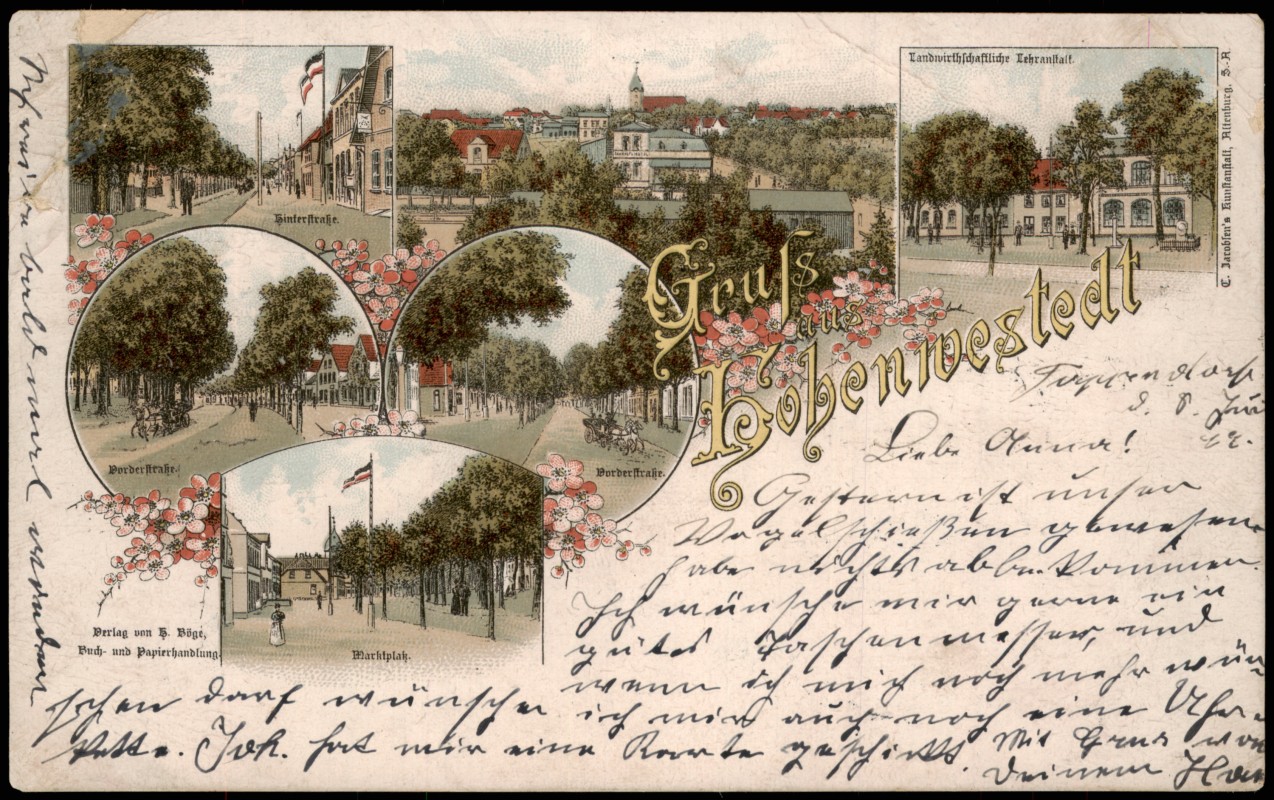 Landwirthschaftliche Lehranstalt.
C. Jacobsen's Kunstanstalt, Altenburg, S.-A.
Hinterstraße.
Gruss
aus
Hohenwestedt
Vorderstraße.
Vorderstraße.
Marktplatz.
Verlag von H. Böge,
Buch- und Papierhandlung.
Tappendorf
d. 8. Jui
Liebe Anna!
Gestern ist unser
Vogelschießen gewesen
habe nichts abbekommen.
Ich wünsche mir gerne ein
gutes Taschenmesser, und
wenn ich mich noch mehr wün-
schen darf wünsche ich mir auch noch eine Uhr-
kette. Joh. hat mir eine Karte geschickt. Mit Gruss von
Deinem